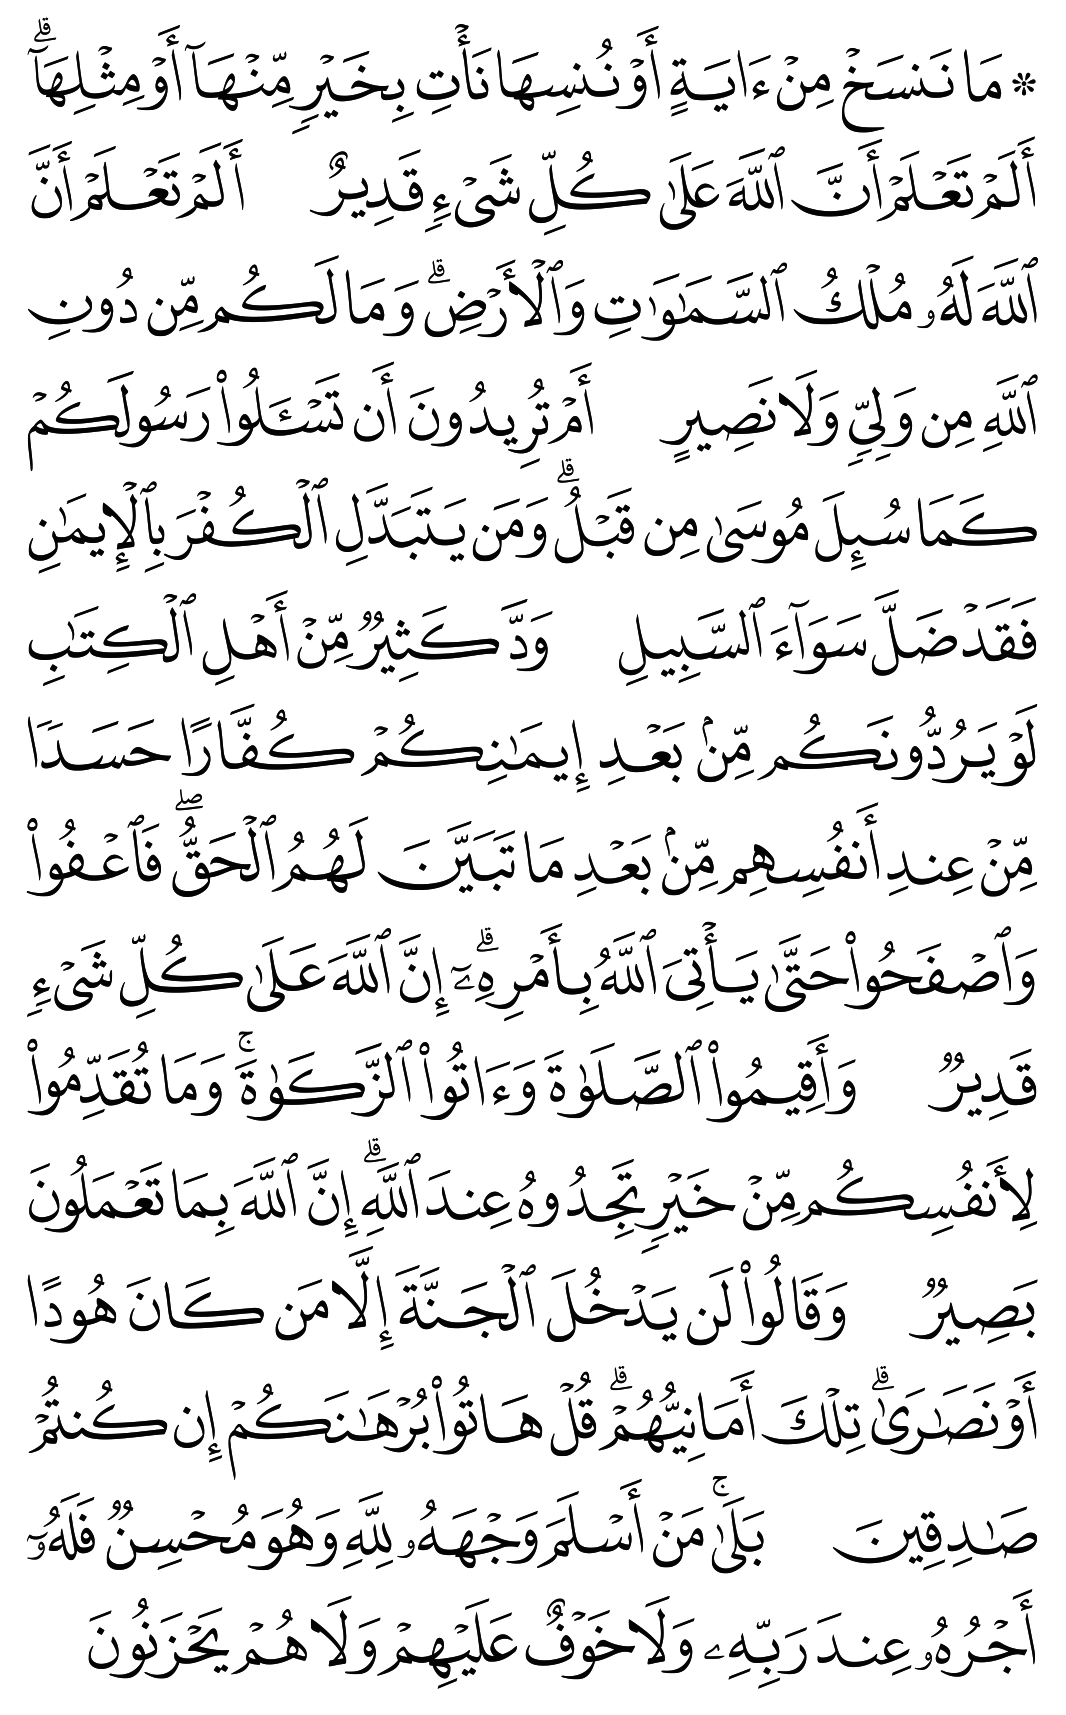 * مَا نَنسَخْ مِنْ ءَايَةٍ أَوْ نُنسِهَا نَأْتِ بِخَيْرٍ مِّنْهَآ أَوْ مِثْلِهَآ ۗ
أَلَمْ تَعْلَمْ أَنَّ ٱللَّهَ عَلَىٰ كُلِّ شَىْءٍ قَدِيرٌ أَلَمْ تَعْلَمْ أَنَّ
ٱللَّهَ لَهُۥ مُلْكُ ٱلسَّمَٰوَٰتِ وَٱلْأَرْضِ ۗ وَمَا لَكُم مِّن دُونِ
ٱللَّهِ مِن وَلِىٍّ وَلَا نَصِيرٍ أَمْ تُرِيدُونَ أَن تَسْـَٔلُوا۟ رَسُولَكُمْ
كَمَا سُئِلَ مُوسَىٰ مِن قَبْلُ ۗ وَمَن يَتَبَدَّلِ ٱلْكُفْرَ بِٱلْإِيمَٰنِ
فَقَدْ ضَلَّ سَوَآءَ ٱلسَّبِيلِ وَدَّ كَثِيرٌ مِّنْ أَهْلِ ٱلْكِتَٰبِ
لَوْ يَرُدُّونَكُم مِّنۢ بَعْدِ إِيمَٰنِكُمْ كُفَّارًا حَسَدًا
مِّنْ عِندِ أَنفُسِهِم مِّنۢ بَعْدِ مَا تَبَيَّنَ لَهُمُ ٱلْحَقُّ ۖ فَٱعْفُوا۟
وَٱصْفَحُوا۟ حَتَّىٰ يَأْتِىَ ٱللَّهُ بِأَمْرِهِۦٓ ۗ إِنَّ ٱللَّهَ عَلَىٰ كُلِّ شَىْءٍ
قَدِيرٌ وَأَقِيمُوا۟ ٱلصَّلَوٰةَ وَءَاتُوا۟ ٱلزَّكَوٰةَ ۚ وَمَا تُقَدِّمُوا۟
لِأَنفُسِكُم مِّنْ خَيْرٍ تَجِدُوهُ عِندَ ٱللَّهِ ۗ إِنَّ ٱللَّهَ بِمَا تَعْمَلُونَ
بَصِيرٌ وَقَالُوا۟ لَن يَدْخُلَ ٱلْجَنَّةَ إِلَّا مَن كَانَ هُودًا
أَوْ نَصَٰرَىٰ ۗ تِلْكَ أَمَانِيُّهُمْ ۗ قُلْ هَاتُوا۟ بُرْهَٰنَكُمْ إِن كُنتُمْ
صَٰدِقِينَ بَلَىٰ ۚ مَنْ أَسْلَمَ وَجْهَهُۥ لِلَّهِ وَهُوَ مُحْسِنٌ فَلَهُۥٓ
أَجْرُهُۥ عِندَ رَبِّهِۦ وَلَا خَوْفٌ عَلَيْهِمْ وَلَا هُمْ يَحْزَنُونَ